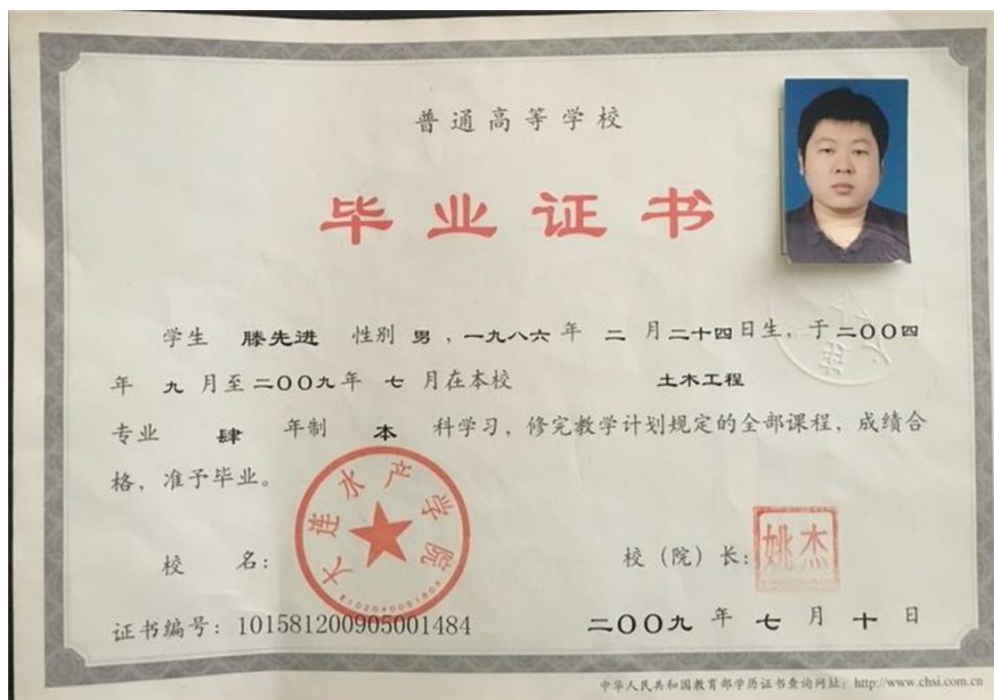 普通高等学校
毕业证书
学生 滕先进 性别 男，一九八六年 二 月二十四日生，于二〇〇四
年 九 月至二〇〇九年 七 月在本校 土木工程
专业 肆 年制 本 科学习，修完教学计划规定的全部课程，成绩合
格，准予毕业。
大连水产学院
校 名：
校（院）长：姚杰
证书编号：101581200905001484
二〇〇九 年 七 月 十 日
中华人民共和国教育部学历证书查询网址：http://www.chsi.com.cn